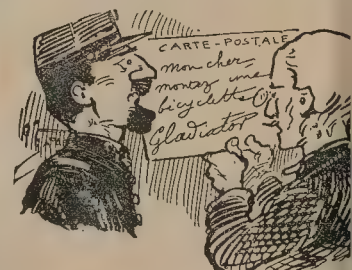 CARTE-POSTALE
Mon cher
montez une
bicyclette
Gladiator